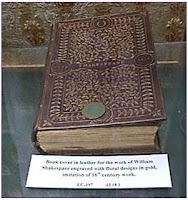 Book cover in leather for the work of William
Shakespare engraved with floral designs in gold,
imitation of 16th century work.